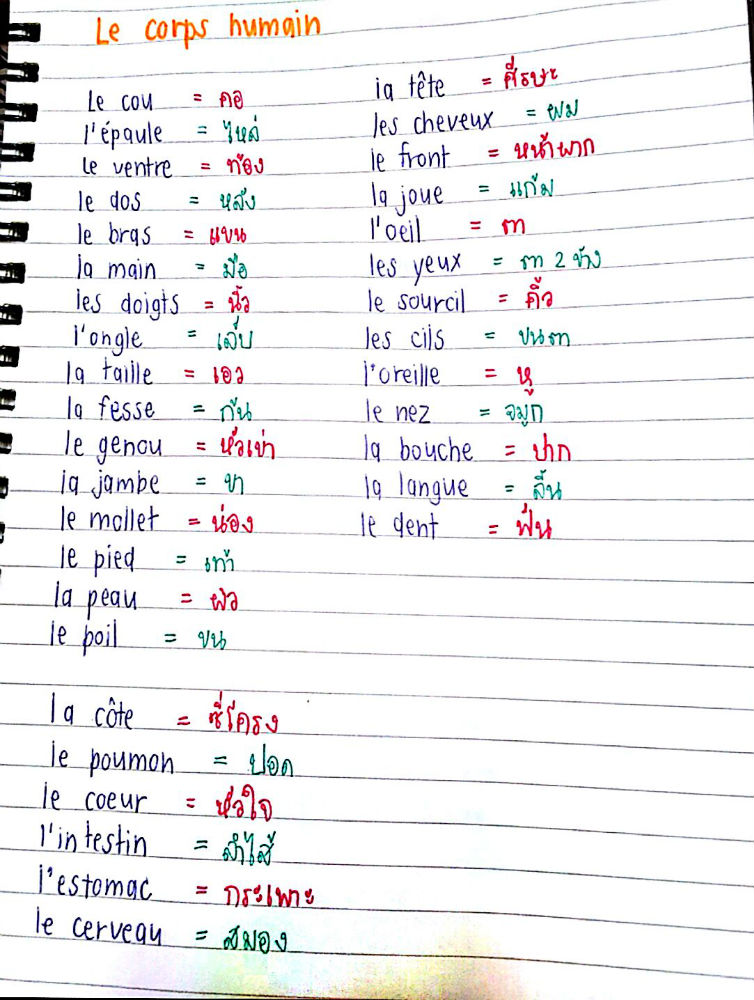 Le corps humain
Le cou = คอ
l'épaule = ไหล่
Le ventre = ท้อง
le dos = หลัง
le bras = แขน
la main = มือ
les doigts = นิ้ว
l'ongle = เล็บ
la taille = เอว
la fesse = ก้น
le genou = หัวเข่า
la jambe = ขา
le mollet = น่อง
le pied = เท้า
la peau = ผิว
le poil = ขน
la côte = ซี่โครง
le poumon = ปอด
le coeur = หัวใจ
l'intestin = ลำไส้
l'estomac = กระเพาะ
le cerveau = สมอง
la tête = ศีรษะ
les cheveux = ผม
le front = หน้าผาก
la joue = แก้ม
l'oeil = ตา
les yeux = ตา 2 ข้าง
le sourcil = คิ้ว
les cils = ขนตา
l'oreille = หู
le nez = จมูก
la bouche = ปาก
la langue = ลิ้น
le dent = ฟัน